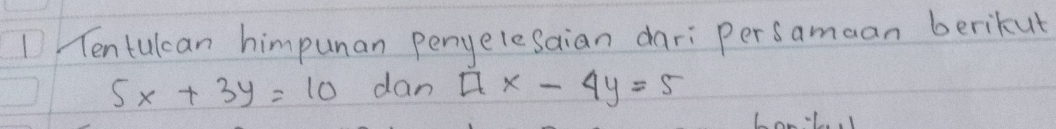 1 Tentukan himpunan penyelesaian dari persamaan berikut
5x + 3y = 10 dan x - 4y = 5